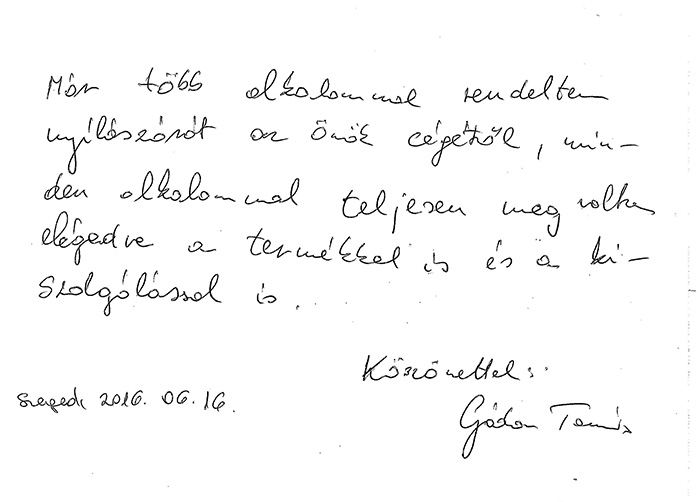 Már több alkalommal rendeltem
nyílászárót az önök cégétől, min-
den alkalommal teljesen meg voltam
elégedve a termékkel is és a ki-
szolgálással is.
Köszönettel:
Szeged, 2016. 06. 16.
Gádor Tamás